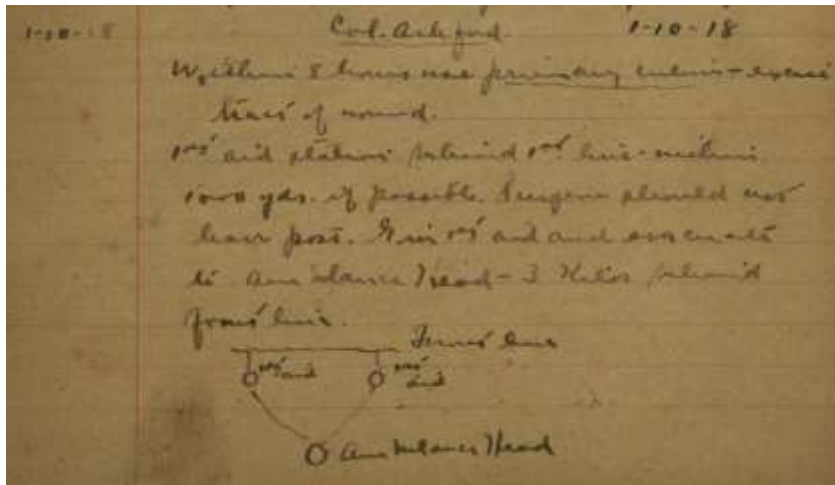 1-10-18 Col. Ashford. 1-10-18
Within 8 hours use primary suture - excise
tract of wound.
1st aid station behind 1st line - within
1000 yds. if possible. Surgeon should not
leave post. Give 1st aid and evacuate
to Ambulance Head - 3 Kilos behind
front line.
Front line
1st aid 1st aid
Ambulance Head